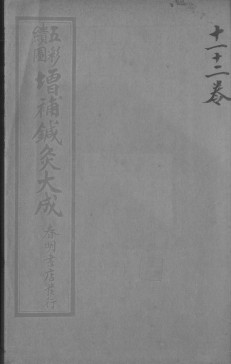 十一十二卷
五彩
繪圖
增補鍼灸大成
春明書店發行